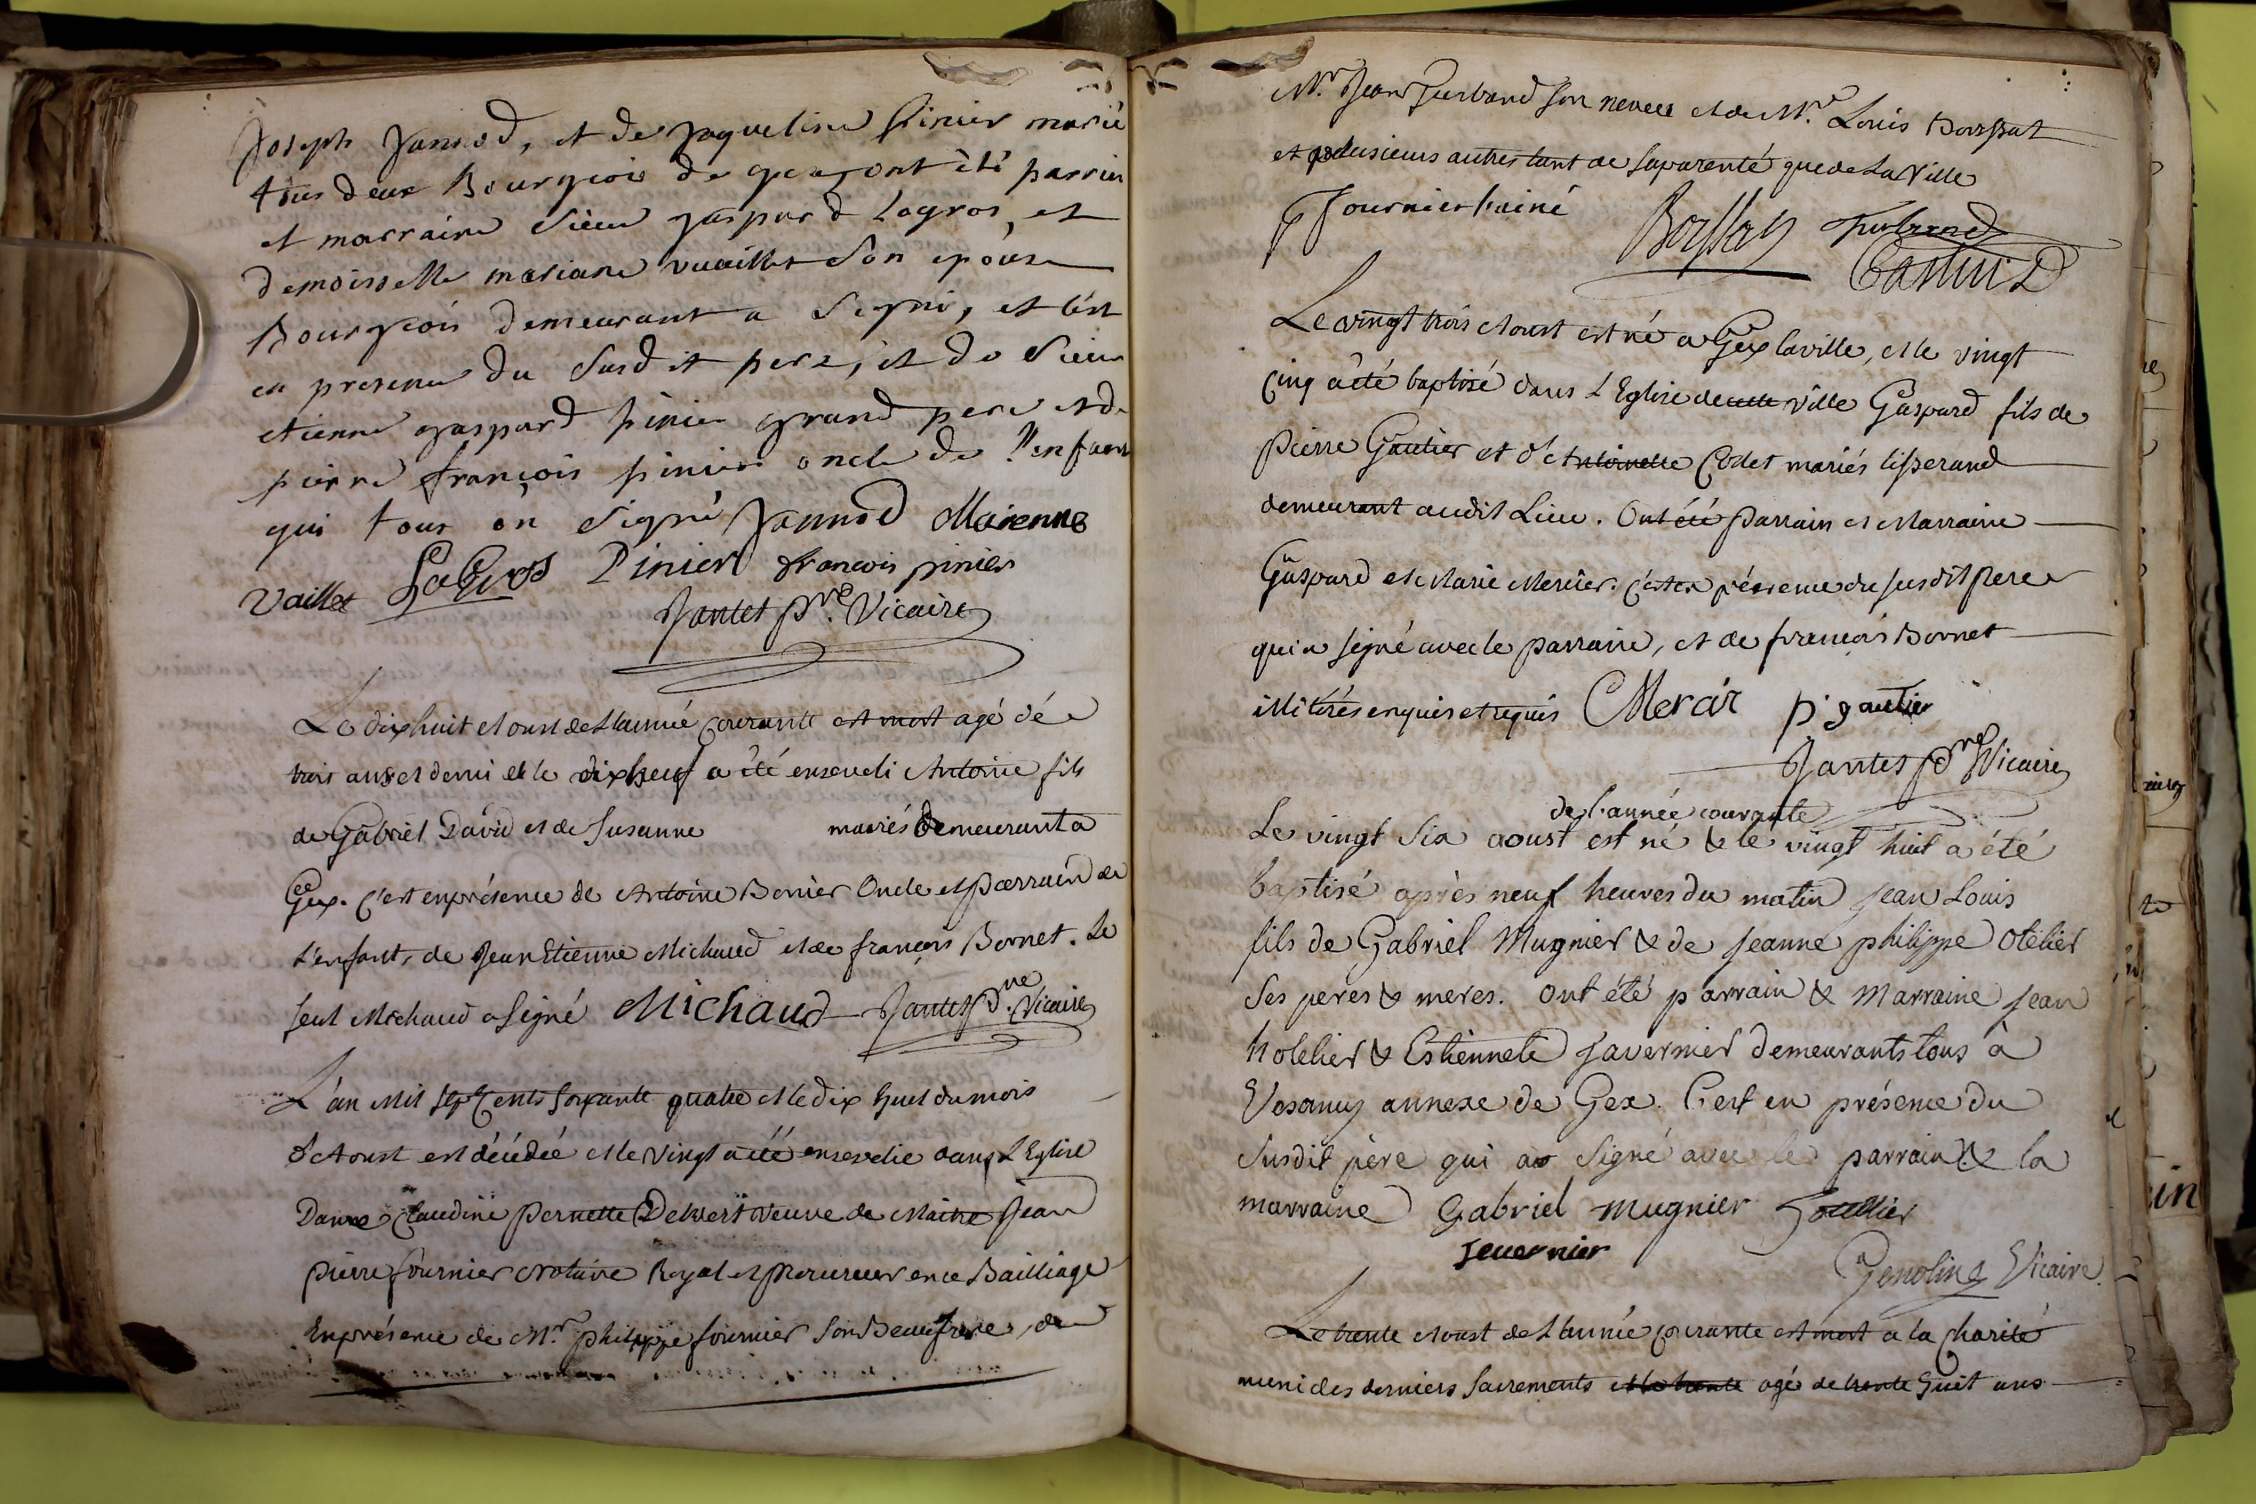 Joseph Jannod, et de Jaqueline Pinier marié
tous deux Bourgeois de gex ont été parrin
et marraine Sieur gaspard Lagros, et
demoisselle mariane vuaillet Son epouse
Bourgeois demeurant a Segni, et c'est
en presence du Susdit pere, et de Sieur
etienne gaspard pinier grand pere et de
pierre françois pinier oncle de l'enfant
qui tous on Signé Jannod Marienne
Vaillet LaGros Pinier françois pinier
Jantet Ptre Vicaire
Le dixhuit Aoust de L'année courante est mort agé dé
trois ans et demi et le dixneuf a été enseveli Antoine fils
de Gabriel David et de Susanne mariés demeurant a
Gex. C'est en présence de Antoine Bonier Oncle et Parrain de
L'enfant, de Jean Etienne Michaud et de françois Bornet. Le
seul Michaud a Signé Michaud Jantet Ptre Vicaire
L'an Mil Sept Cents Soixante quatre et le dix huit du mois
d'Aoust est décédée et le vingt a été ensevelie dans L'Eglise
Dame Claudine Pernette veuve de Maitre Jean
Pierre fournier Notaire Royal et Procureur en ce Bailliage
En présence de Mr. philippe fournier Son Beaufrere, de
Mr. Jean Son neveu et de Mr. Louis
et plusieurs autres tant de Sa parenté que de La Ville
Fournier l'ainé
Castin
Le vingt trois Aoust est né a Gex la ville, et le vingt
cinq a été baptisé dans L'Eglise de cette ville Gaspard fils de
Pierre Gautier et d'Antoinette Codet mariés tisserand
demeurant audit Lieu. Ont été Parrain et Marraine
Gaspard et Marie Mercier. C'est en présence du susdit Pere
qui a signé avec le parrain, et de françois Bornet
illitérés enquis et requis Mercir p gautier
Jantet Ptre Vicaire
de l'année courante
Le vingt Six aoust est né & le vingt huit a été
baptisé après neuf heures du matin Jean Louis
fils de Gabriel Mugnier & de Jeanne philippe Otelier
Ses peres & meres. Ont été parrain & Marraine Jean
hotelier & Estiennete Javernier demeurants tous à
Vesancy annexe de Gex. C'est en présence du
Susdit père qui a Signé avec le parrain & la
marraine Gabriel mugnier
Jevernier
Genolin Vicaire.
Le trente Aoust de L'année courante est mort a la Charité
muni des derniers Sacrements et le trente agé de trente huit ans